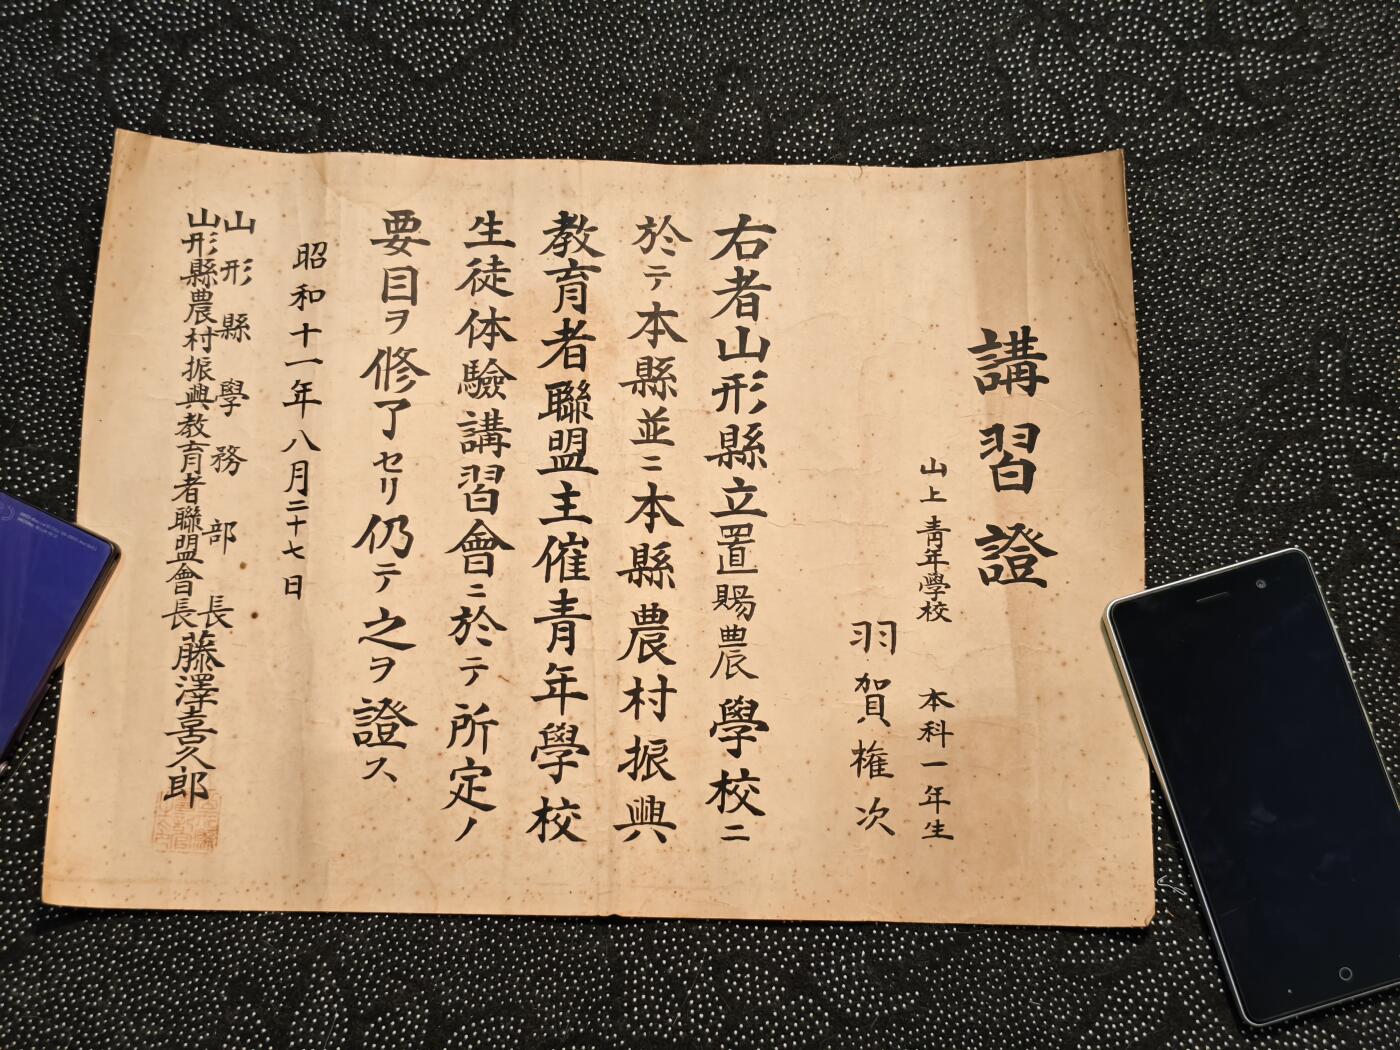 講習證
山上青年學校 本科一年生
羽賀権次
右者山形縣立置賜農學校ニ
於テ本縣並ニ本縣農村振興
教育者聯盟主催青年學校
生徒体驗講習會ニ於テ所定ノ
要目ヲ修了セリ仍テ之ヲ證ス
昭和十一年八月二十七日
山形縣學務部長
山形縣農村振興教育者聯盟會長
藤澤喜久郎